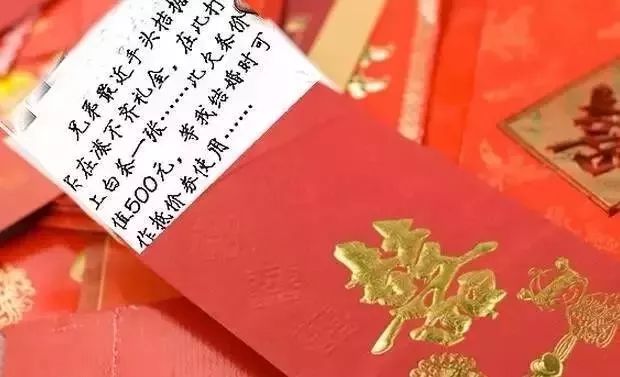 兄弟最近手头拮据
在凑不齐礼金，在此打
上白条一张……此欠条价
值500元，等我结婚时可
作抵价券使用……